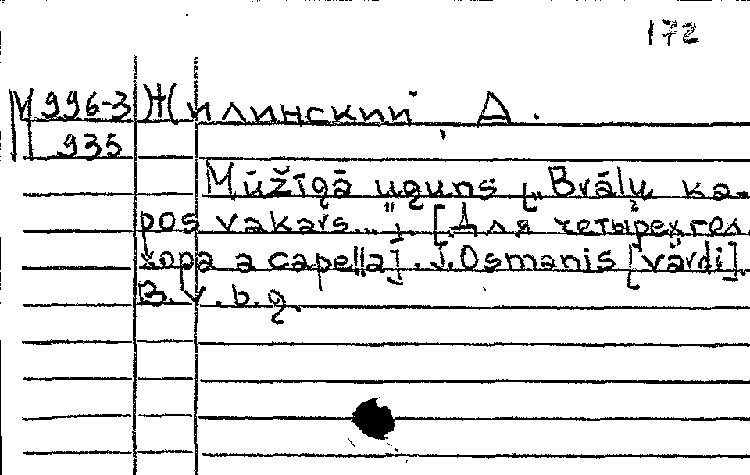 172
М 996-3 Жилинский, А.
935
Mūžīgā uguns ["Brāļu ka-
pos vakars..."]. [Для четырехгол.
хора a capella]. J. Osmanis [vārdi].
B. v. b. g.